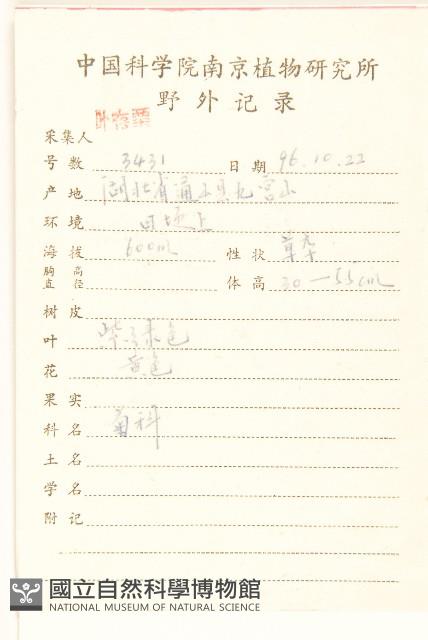 中国科学院南京植物研究所
野外记录
采集人
号数 3431 日期 96.10.22
产地 湖北省通山县九宫山
环境 田埂上
海拔 600m 性状 草本
胸高直径 体高 30—55cm
树皮
叶 色
花 黄色
果实
科名 菊科
土名
学名
附记
國立自然科學博物館
NATIONAL MUSEUM OF NATURAL SCIENCE